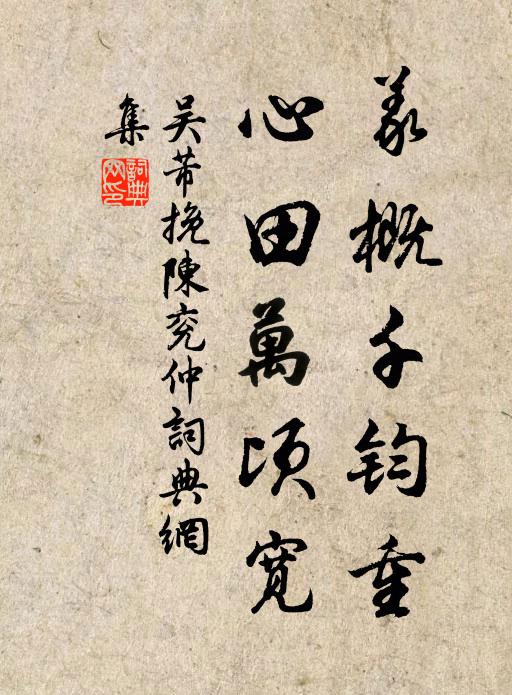 義概千鈞重
心田萬頃寬
吴芾挽陳兖仲詞典網
集
詞典
网印